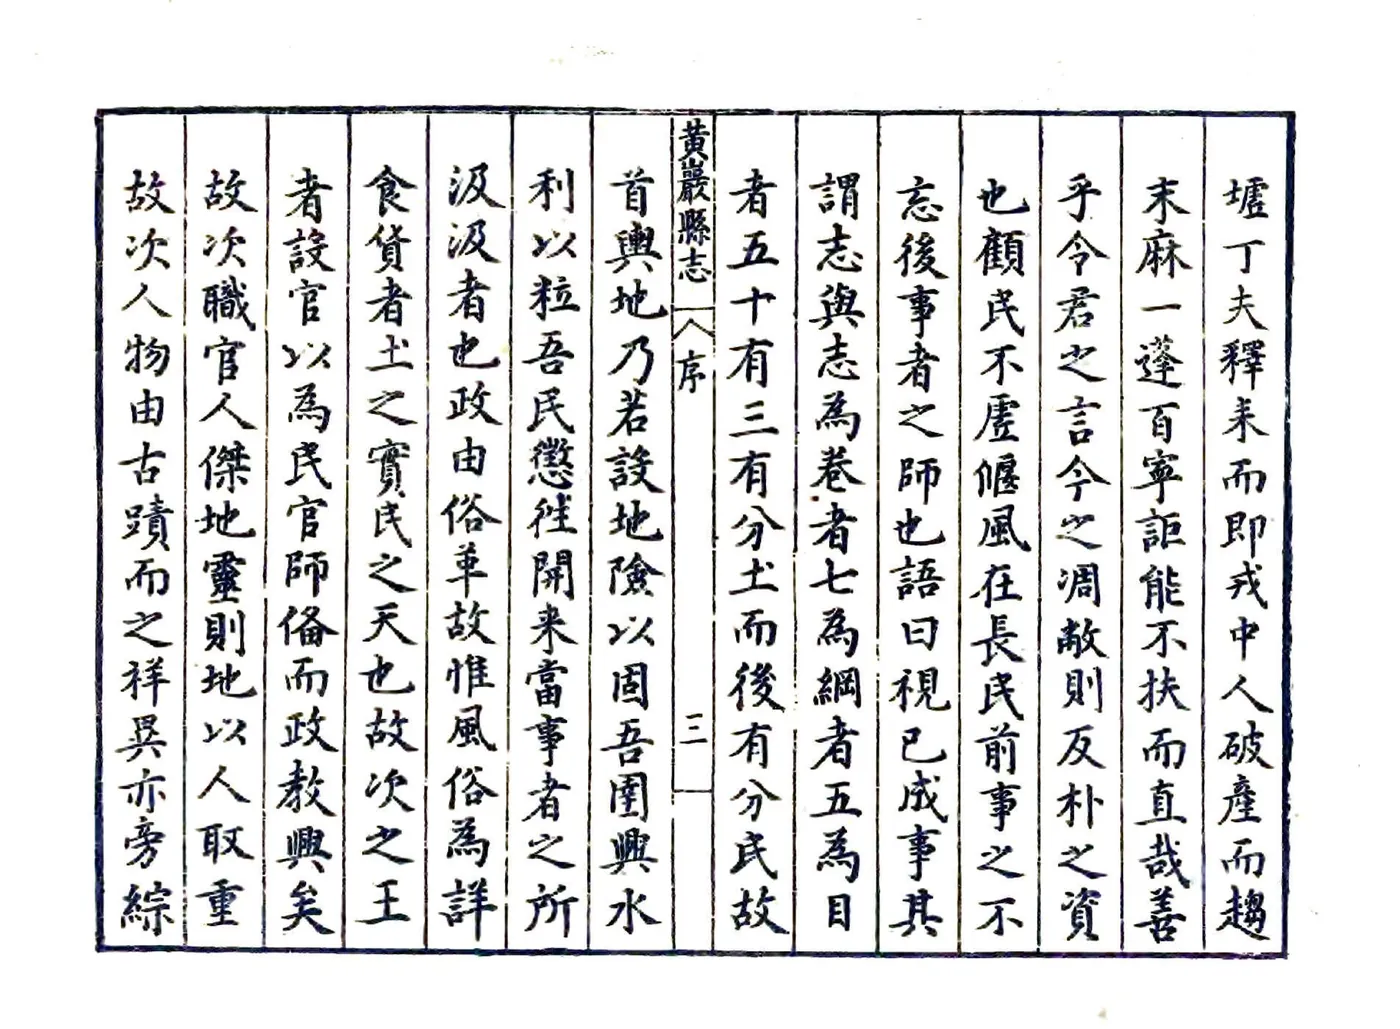 墟丁夫釋耒而即戎中人破產而趨
末麻一蓬百寧詎能不扶而直哉善
乎令君之言今之凋敝則反朴之資
也顧民不虛偃風在長民前事之不
忘後事者之師也語曰視已成事其
謂志與志為卷者七為綱者五為目
者五十有三有分土而後有分民故
黃巖縣志 序 三
首輿地乃若設地險以固吾圉興水
利以粒吾民懲徃開来當事者之所
汲汲者也政由俗革故惟風俗為詳
食貨者土之實民之天也故次之王
者設官以為民官師俻而政教興矣
故次職官人傑地靈則地以人取重
故次人物由古蹟而之祥異亦旁綜